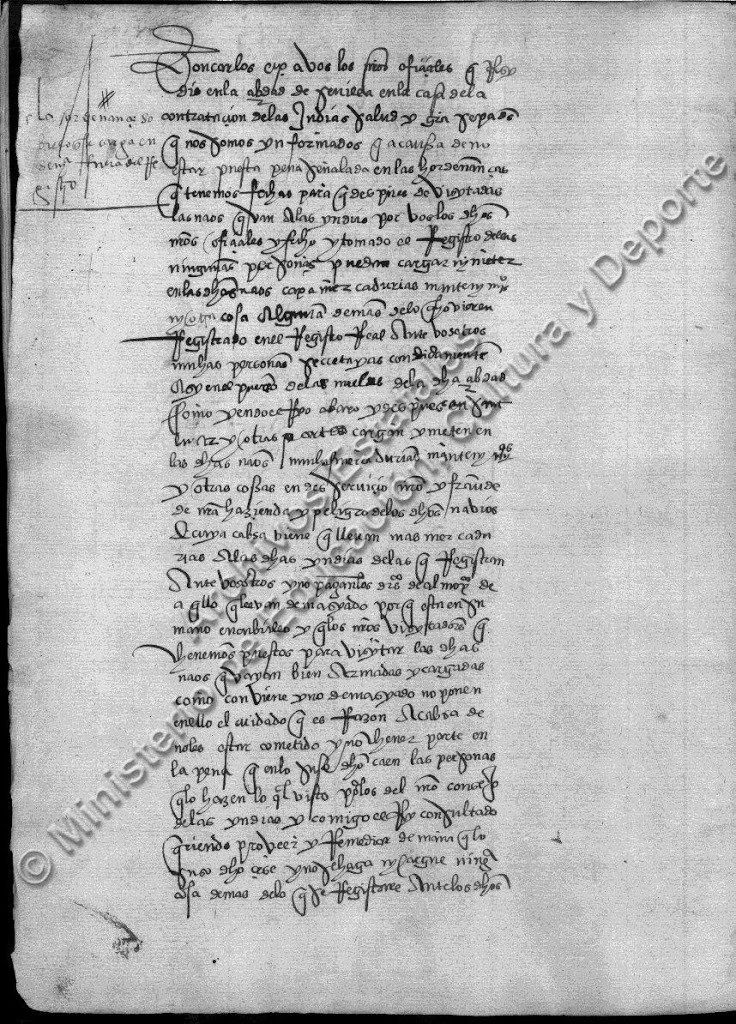 Don carlos etc a vos los nros ofiçiales q Resy
dis en la çibdad de sevilla en la casa de la
contrataçion de las Indias salud y gra sepades
q nos somos ynformados q a causa de no
estar puesta pena señalada en las hordenanças
q tenemos fechas para q despues de visytadas
las naos q van a las yndias por vos los dhos
nros ofiçiales y fecho y tomado el Registro dellas
ningunas personas puedan cargar ny meter
en las dhas naos capa mercadurias mantenymos
ny otra cosa alguna demas de lo q ovieren
Registrado en el Registro Real ante vosotros
muchas personas secretayas condidamente
asy en el puerto de las muelas de la dha çibdad
como yendo el Ryo abaxo y despues en sant
lucar y otras partes cargan y meten en
las dhas naos muchas mercadurias mantenymos
y otras cosas en deserviçio nro y fraude
de nra hazienda y peligro de los dhos navios
a cuya cabsa viene q llevan mas mercadu
rias a las dhas yndias de las q Registran
ante vosotros y no pagan los dros de almoxo de
aqllo q llevan demasyado porq esta en su
mano encubrirlo y q los nros visytadores q
thenemos puestos para visytar las dhas
naos q vayan bien armadas y cargadas
como conviene y no demasyado no ponen
en ello el cuidado q es Razon a cabsa de
no les estar cometido y no thener parte en
la pena q en lo suso dho caen las personas
q lo hazen lo ql visto por los del nro consejo
de las yndias y comigo el Rey consultado
queriendo proveer y Remediar de manera q lo
suso dho çese y no se haga ny cargue ninga
cosa demas de lo q se Registrare ante los dhos
la hordenança so
q no se cargue en
demas fuera del Re
gistro
© Ministerio de Educación, Cultura y Deporte
Archivos Estatales